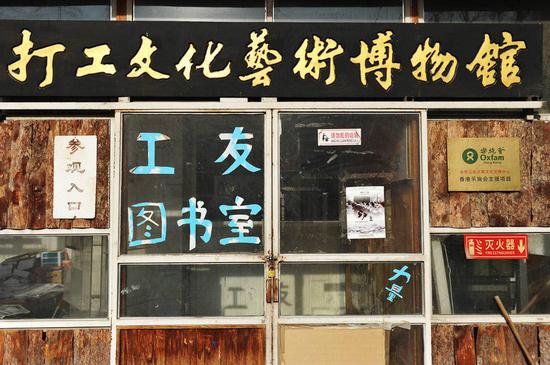 打工文化藝術博物館
参观入口
工友
图书室
乐施会
Oxfam
Hong Kong
香港乐施会支援项目
灭火器
FIRE EXTINGUISHER
力量